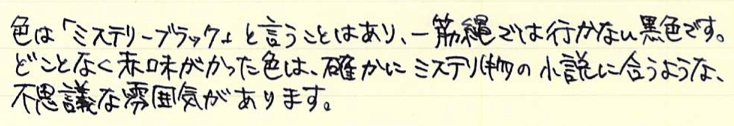 色は「ミステリーブラック」と言うことはあり、一筋縄では行かない黒色です。
どことなく赤味がかった色は、確かにミステリ物の小説に合うような、
不思議な雰囲気があります。